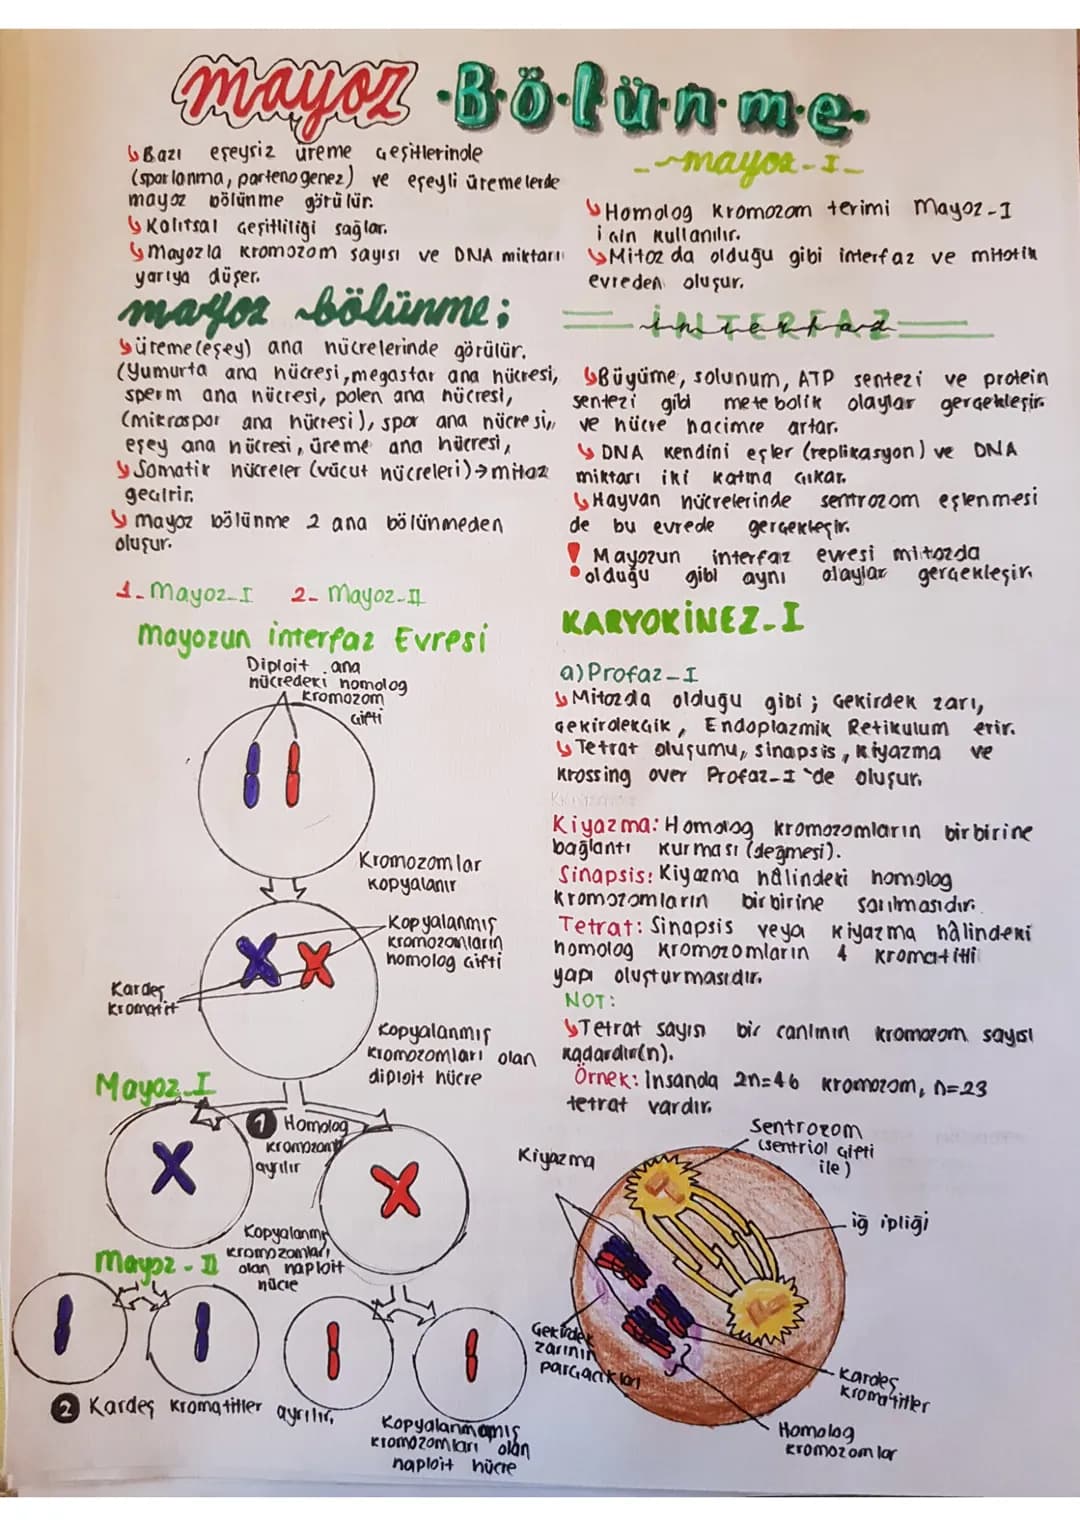 mayoz Bölünme
↳Bazı eşeysiz üreme çeşitlerinde
(sporlanma, partenogenez) ve eşeyli üremelerde
mayoz bölünme görülür.
↳Kalıtsal çeşitliliği sağlar.
↳Mayozla kromozom sayısı ve DNA miktarı
yarıya düşer.
mayoz bölünme;
↳üreme(eşey) ana hücrelerinde görülür.
(Yumurta ana hücresi, megastar ana hücresi,
sperm ana hücresi, polen ana hücresi,
(mikrospor ana hücresi), spor ana hücresi,
eşey ana hücresi, üreme ana hücresi,
↳Somatik hücreler (vücut hücreleri)→mitoz
geçirir.
↳mayoz bölünme 2 ana bölünmeden
oluşur.
1-Mayoz-I 2-Mayoz-II
Mayozun interfaz Evresi
Diploit ana
hücredeki homolog
kromozom
çifti
Kromozomlar
kopyalanır
Kopyalanmış
kromozomların
homolog çifti
Kardeş
kromatit
Kopyalanmış
kromozomları olan
diploit hücre
Mayoz I
1 Homolog
kromozom
ayrılır
Kopyalanmış
kromozomları
olan haploit
hücre
Mayoz-II
2 Kardeş kromatitler ayrılır.
Kopyalanmamış
kromozomları olan
haploit hücre
mayoz-I
↳Homolog kromozom terimi Mayoz-I
için kullanılır.
↳Mitoz da olduğu gibi interfaz ve mitotik
evreden oluşur.
İNTERFAZ
↳Büyüme, solunum, ATP sentezi ve protein
sentezi gibi metebolik olaylar gerçekleşir
ve hücre hacimce artar.
↳DNA kendini eşler (replikasyon) ve DNA
miktarı iki katına çıkar.
↳Hayvan hücrelerinde sentrozom eşlenmesi
de bu evrede gerçekleşir.
! Mayozun interfaz evresi mitozda
olduğu gibi aynı olaylar gerçekleşir.
KARYOKİNEZ-I
a)Profaz-I
↳Mitozda olduğu gibi; çekirdek zarı,
çekirdekçik, Endoplazmik Retikulum erir.
↳Tetrat oluşumu, sinapsis, kiyazma ve
krossing over Profaz-I 'de oluşur.
Kiyazma: Homolog kromozomların birbirine
bağlantı kurması (değmesi).
Sinapsis: Kiyazma hâlindeki homolog
kromozomların birbirine sarılmasıdır.
Tetrat: Sinapsis veya kiyazma hâlindeki
homolog kromozomların 4 kromatitli
yapı oluşturmasıdır.
NOT:
↳Tetrat sayısı bir canlının kromozom sayısı
kadardır(n).
Örnek: İnsanda 2n=46 kromozom, n=23
tetrat vardır.
Sentrozom
(sentriol çifti
ile)
Kiyazma
iğ ipliği
Çekirdek
zarının
parçacıkları
Kardeş
kromatitler
Homolog
kromozomlar